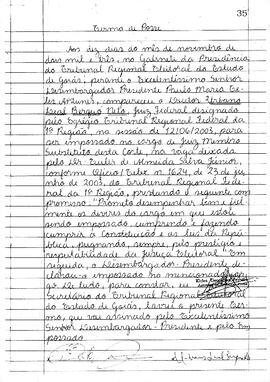 35
Termo de Posse
Aos dez dias do mês de novembro de
dois mil e três, no Gabinete da Presidência
do Tribunal Regional Eleitoral do Estado
de Goiás, perante o Excelentíssimo Senhor
Desembargador Presidente Paulo Maria Te-
les Antunes, compareceu o Doutor Urbano
Leal Berquó Neto, Juiz Federal designado
pelo Egrégio Tribunal Regional Federal da
1ª Região, na sessão de 12/06/2003, para
ser impossado no cargo de Juiz Membro
Substituto desta Corte, na vaga deixada
pelo Dr. Euler de Almeida Silva Júnior,
conforme Ofício/ nº 1624, de 23 de ju
nho de 2003, do Tribunal Regional Fede-
ral da 1ª Região, prestando o seguinte com
promisso: "Prometo desempenhar bem e fiel
mente os deveres do cargo em que estou
sendo impossado, cumprindo e fazendo
cumprir a Constituição e as leis da Repú-
blica, pugnando, sempre, pelo prestígio e
respeitabilidade da Justiça Eleitoral". Em
seguida, o Desembargador-Presidente de-
clarou impossado no mencionado
go. De tudo, para constar, eu
Secretário do Tribunal Regional Eleitoral
do Estado de Goiás, lavrei o presente Ter-
mo, que vai assinado pelo Excelentíssimo
Senhor Desembargador-Presidente e pelo Em
possado.